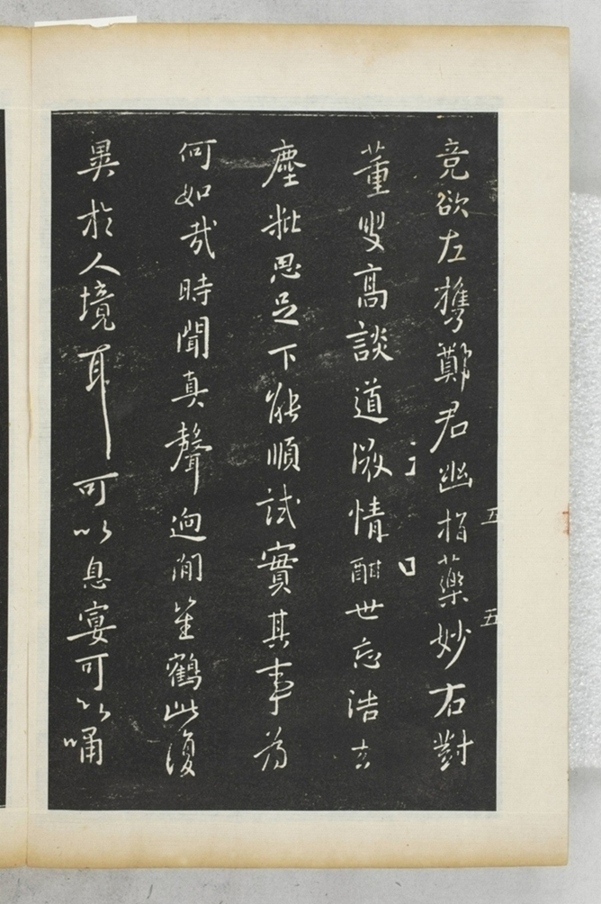 竟欲左攜鄭君幽指藥妙右對
董叟高談道激情酣世忘浩去
塵批思足下能順試實其事為
何如哉時聞真聲迥澗笙鶴此復
異於人境耳可以息宴可以嘯
五
五